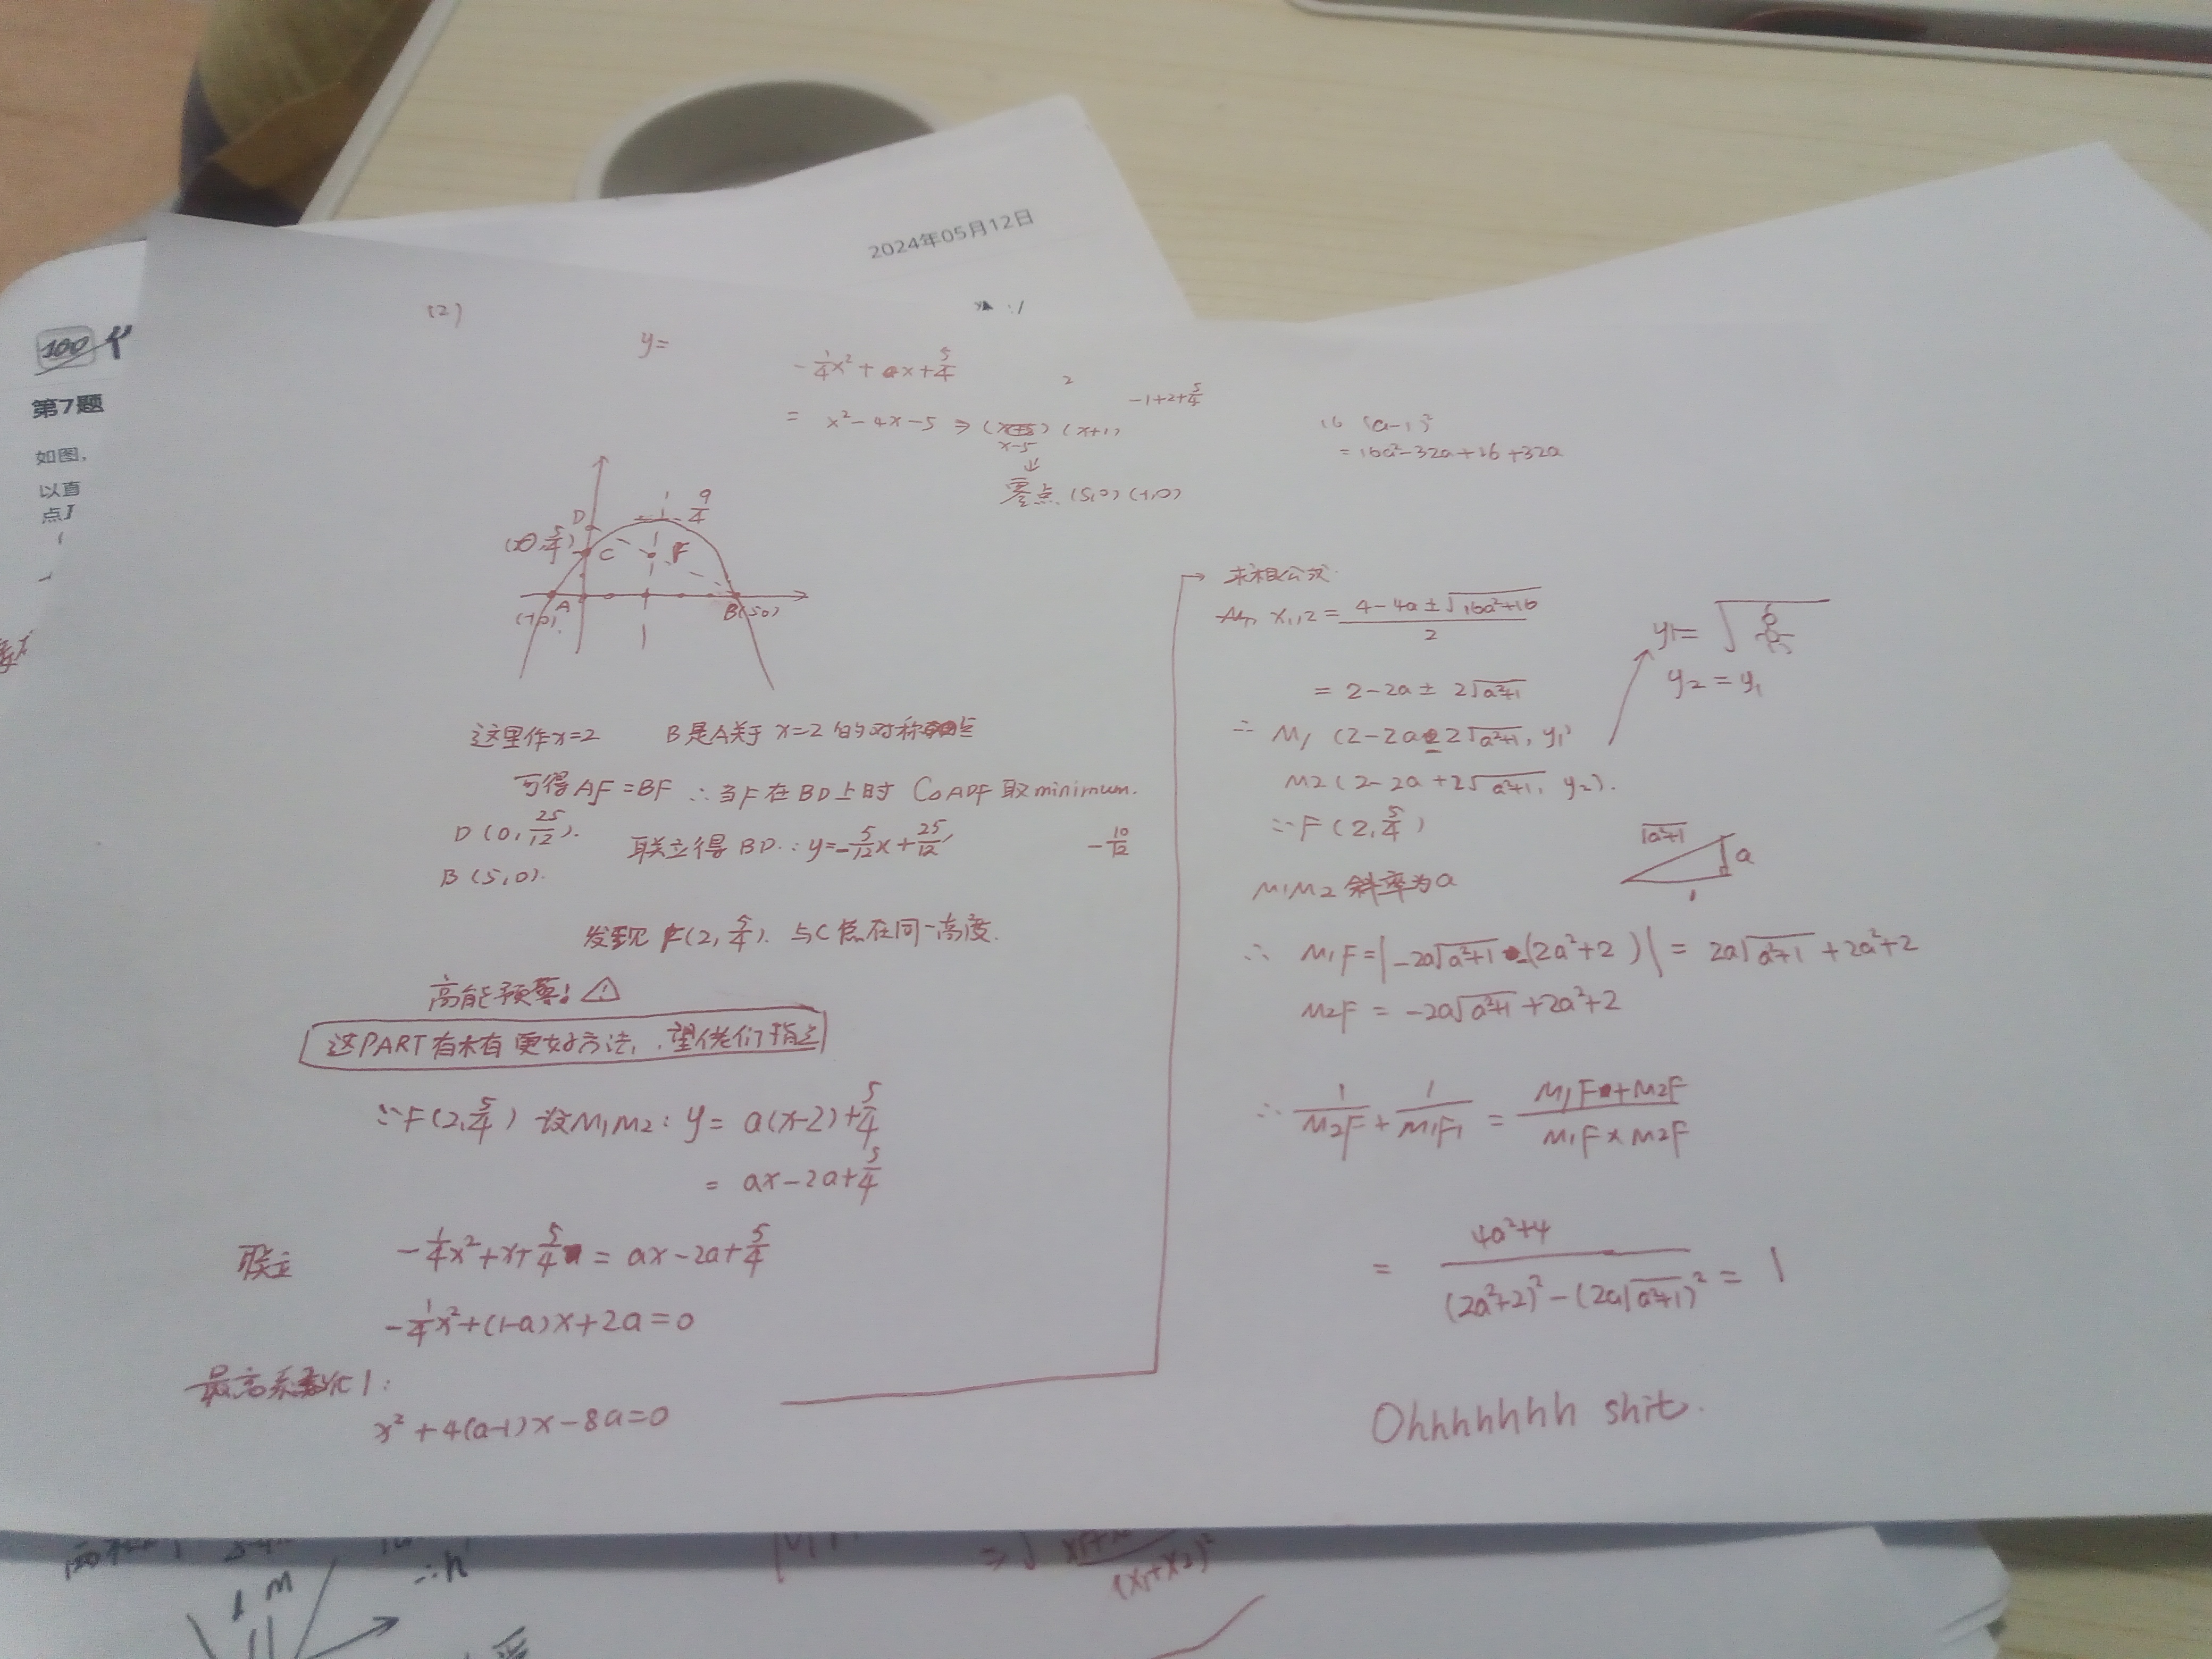 2024年05月12日
100
第7题
如图,
以直
点
(2)
y=
-1/4x² + ax + 5/4
= x²-4x-5 ⇒ (x+5) (x+1)
x-5
2
-1+2+5/4
⇓
零点 (5,0) (-1,0)
16 (a-1)²
= 16a²-32a+16+32a
D
9/4
(0, 5/4)
C
F
(-1,0)
A
B(5,0)
这里作x=2 B是A关于x=2的对称点
可得AF=BF ∴当F在BD上时 C△ADF取minimum.
D(0, 25/12).
B(5,0).
联立得BD: y=-5/12x+25/12
-10/12
发现F(2, 5/4). 与C点在同一高度.
高能预警! ⚠
这PART有木有更好方法, 望佬们指
∵F(2, 5/4) 设M1M2: y= a(x-2)+5/4
= ax-2a+5/4
联立 -1/4x²+x+5/4 = ax-2a+5/4
-1/4x²+(1-a)x+2a=0
最高系数化1:
x²+4(a-1)x-8a=0
→ 求根公式
x1,2 = (4-4a±√(16a²+16))/2
= 2-2a±2√(a²+1)
∴ M1 (2-2a-2√(a²+1), y1)
M2 (2-2a+2√(a²+1), y2).
y1= √
y2=y1
∵F(2, 5/4)
M1M2斜率为a
√(a²+1)
a
1
∴ M1F=|-2a√(a²+1)-(2a²+2)| = 2a√(a²+1)+2a²+2
M2F = -2a√(a²+1)+2a²+2
∴ 1/M2F + 1/M1F1 = (M1F+M2F)/(M1F×M2F)
= (4a²+4)/((2a²+2)²-(2a√(a²+1))²) = 1
Ohhhhhhh shit.
M
∴h
(x1+x2)²